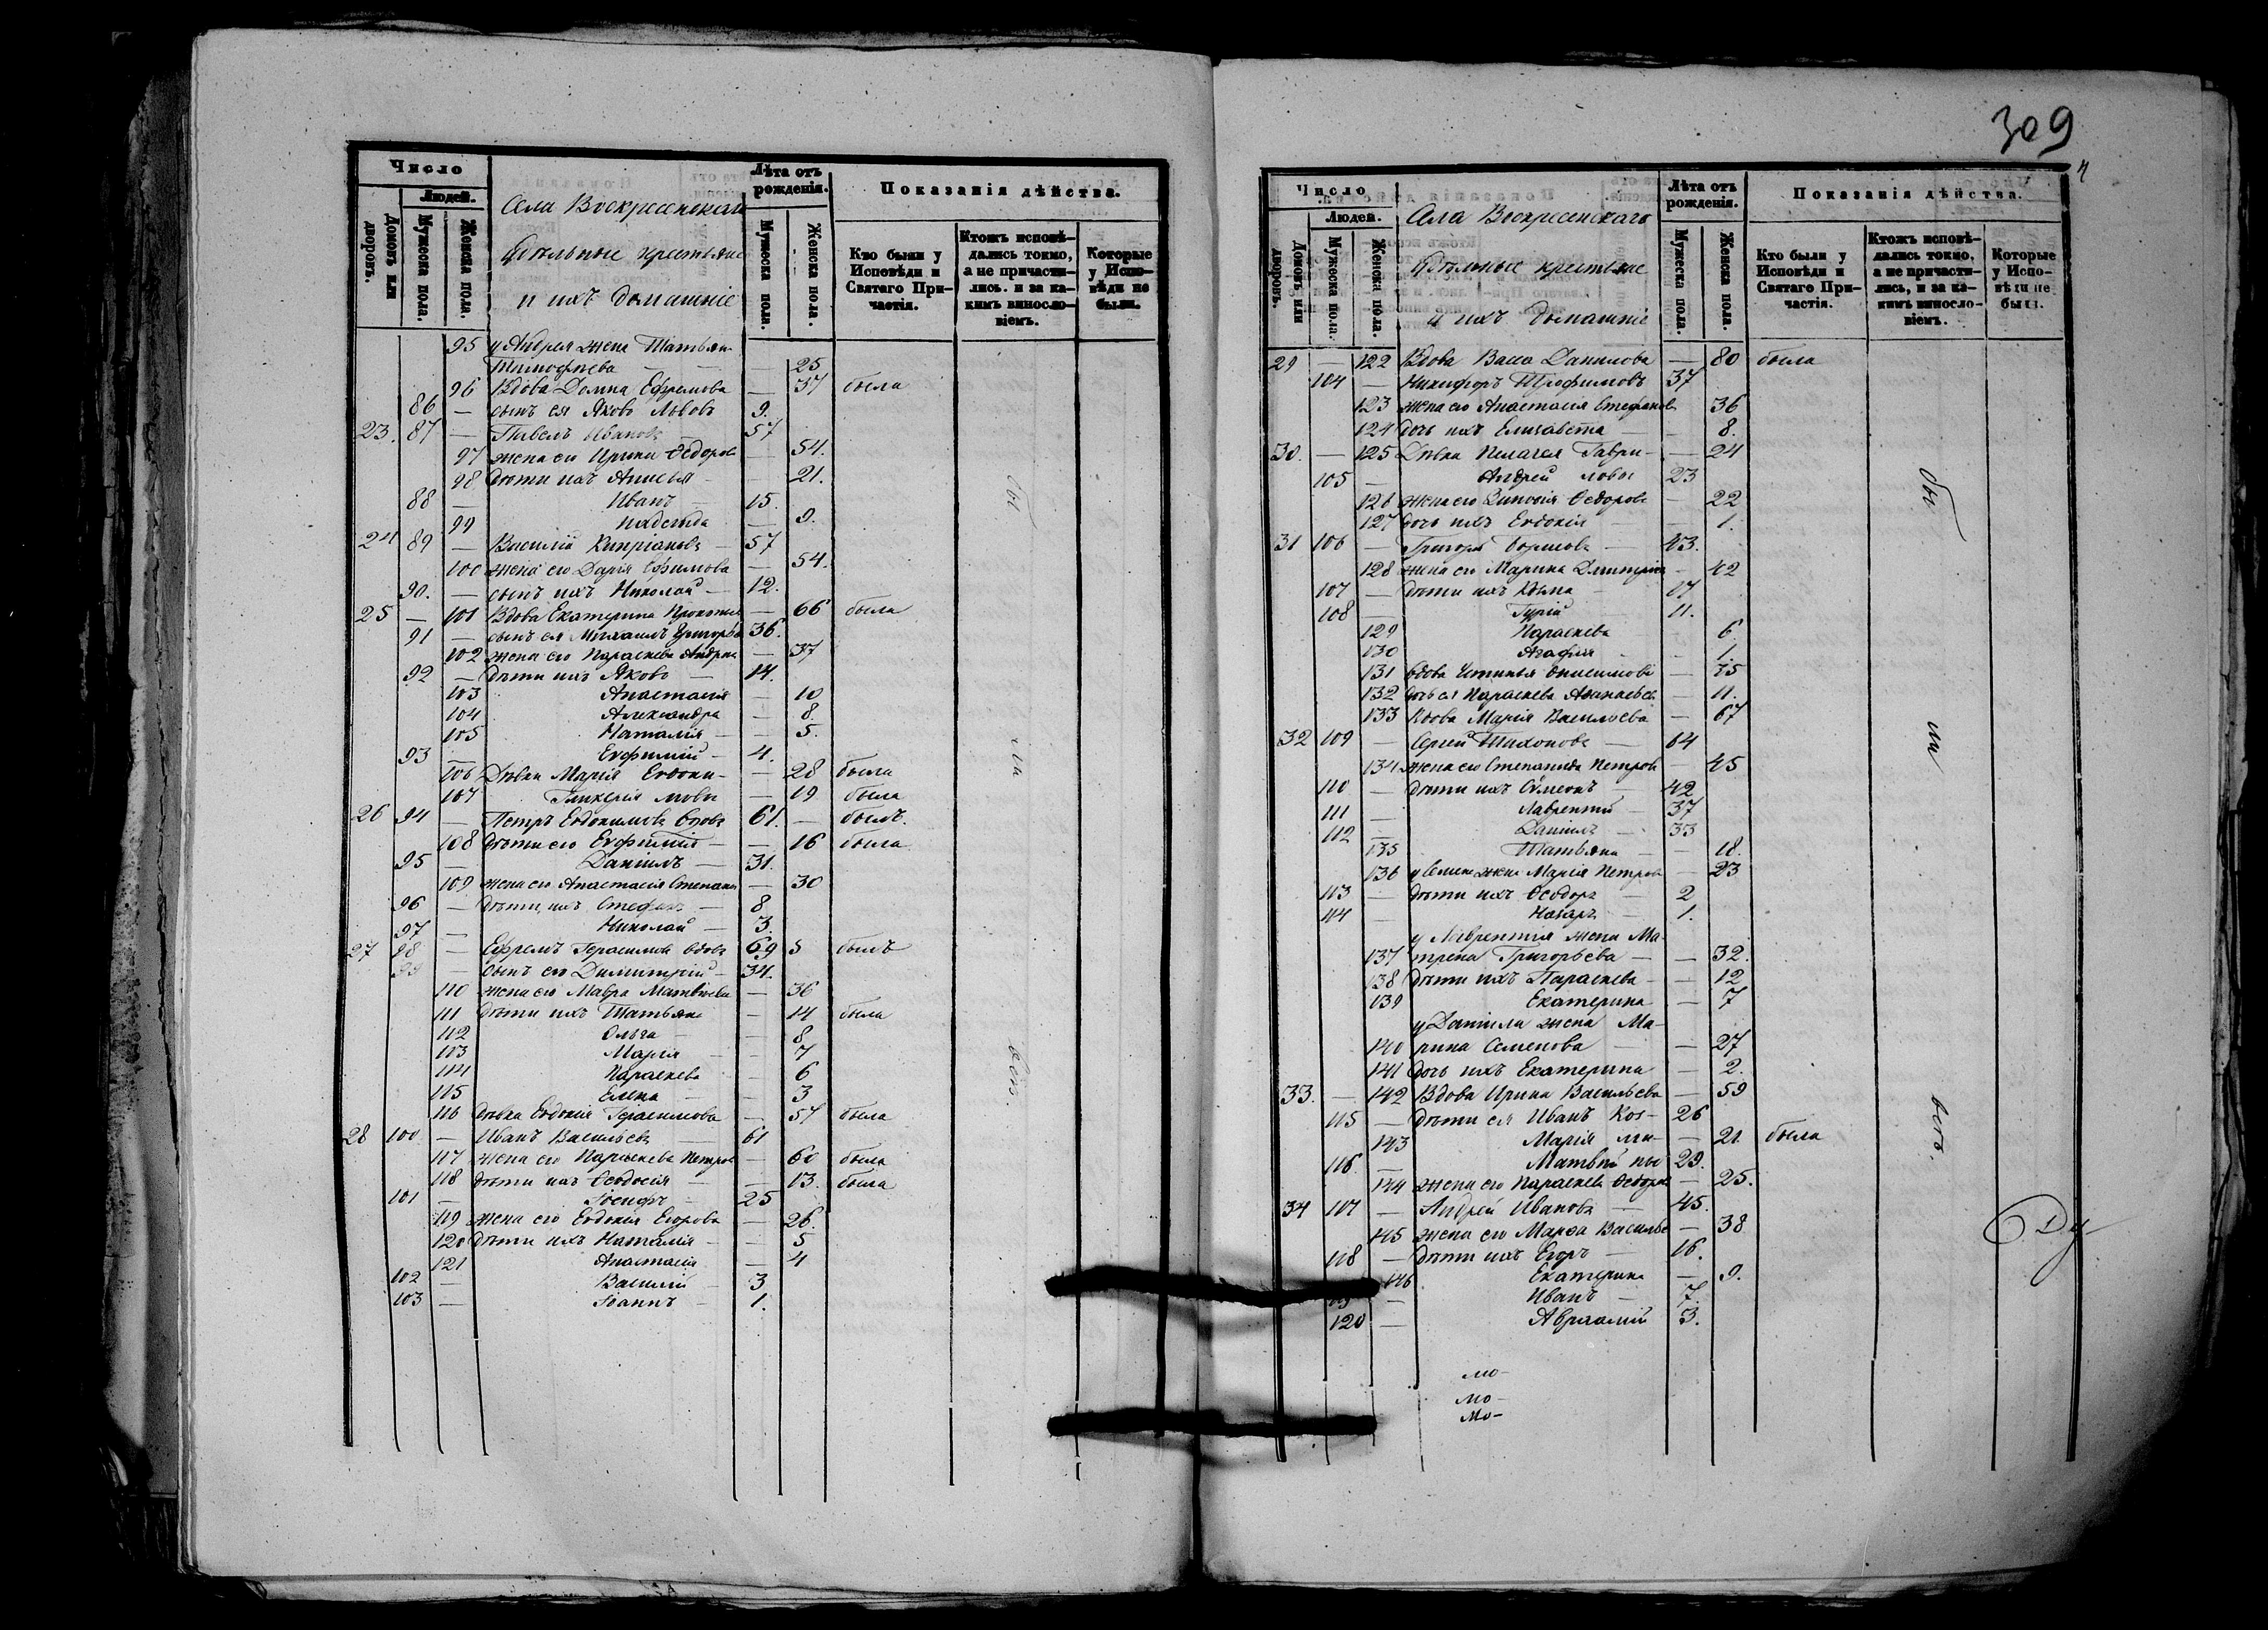 Число
Людей.
Домовъ или дворовъ.
Мужеска пола.
Женска пола.
Села Воскресенскаго
Удѣльные крестьяне
и ихъ домашніе
Лѣта отъ рожденія.
Мужеска пола.
Женска пола.
Показанія дѣйства.
Кто были у Исповѣди и Святаго Причастія.
Ктожъ исповѣдались токмо, а не причастились, и за какимъ винословіемъ.
Которые у Исповѣди не были.
95 у Андрея жена Татьяна
Тимофеева — 25
96 Вдова Домна Ефремова — 37 была
86 — сынъ ея Яковъ Львовъ 9.
23. 87 — Павелъ Ивановъ 57
97 жена его Ирина Ѳедорова — 54.
98 дѣти ихъ Анисья — 21.
88 — Иванъ — 15.
99 Надежда — 9.
24 89 — Василій Кипріановъ — 57
100 жена его Дарія Ефимова — 54.
90. — сынъ ихъ Николай — 12.
25 — 101 Вдова Екатерина Прокопьева — 66 была
91 — сынъ ея Михаилъ Григорьевъ 36.
102 жена его Параскева Андреева — 37
92 — дѣти ихъ Яковъ — 14.
103 Анастасія — 10
104 Александра — 8.
105 Наталія — 5.
93 — Евфимій — 4.
106 Дѣвки Марія Евдоки- — 28 была
107 Гликерія мовы — 19 была
26 94 — Петръ Евдокимовъ вдовъ 61. — былъ.
108 дѣти его Евфимія — — 16 была
95 — Даніилъ — 31.
109 жена его Анастасія Степанова — 30
96 — дѣти ихъ Стефанъ — 8
97 — Николай — 3.
27 98 — Ефремъ Герасимовъ вдовъ 69 былъ
99 — сынъ его Димитрій — 34.
110 жена его Мавра Матвѣева — 36
111 дѣти ихъ Татьяна — 14 была
112 Ольга — 8
113 Марія — 7
114 Параскева — 6
115 Елена — 3
116 Дѣвка Евдокія Герасимова — 57 была
28 100 — Иванъ Васильевъ — 61
117 жена его Параскева Петрова — 60 была
118 дѣти ихъ Ѳеодосія — 13. была
101 — Іосифъ — 25
119 жена его Евдокія Егорова — 26.
120 дѣти ихъ Наталія — 5
121 Анастасія — 4
102 — Василій — 3
103 — Іоаннъ — 1.
бы
ли
всѣ.
309
Число
Людей.
Домовъ или дворовъ.
Мужеска пола.
Женска пола.
Села Воскресенскаго
Удѣльные крестьяне
и ихъ домашніе
Лѣта отъ рожденія.
Мужеска пола.
Женска пола.
Показанія дѣйства.
Кто были у Исповѣди и Святаго Причастія.
Ктожъ исповѣдались токмо, а не причастились, и за какимъ винословіемъ.
Которые у Исповѣди не были.
29 — 122 Вдова Васса Данилова — 80 была
104 — Никифоръ Трофимовъ 37
123 жена его Анастасія Стефанова 36
124 дочь ихъ Елизавета — 8.
30. — 125 Дѣвка Пелагея Гаври- — 24
105 — Андрей ловы 23
126 жена его Ѳедорова — 22
127 дочь ихъ Евдокія — 1.
31 106 — Григорій Борисовъ — 43.
128 жена его Марина Дмитріева — 42
107 — дѣти ихъ Козма — 17
108 — Гурій 11.
129 Параскева 6
130 Агафія — 1.
131 вдова Устинья Онисимова — 35
132 дочь ея Параскева Ананьева — 11.
133 Вдова Марія Васильева — 67
32 109 — Сергей Тихоновъ — 64
134 жена его Степанида Петрова — 45
110 — дѣти ихъ Сѵмеонъ — 42
111 — Лаврентій — 37
112 — Даніилъ — 33
135 Татьяна — 18.
136 у Семена жена Марія Петрова — 23
113 — дѣти ихъ Ѳеодоръ — 2
114 — Назаръ — 1.
у Лаврентія жена Ма-
137 трена Григорьева — — 32.
138 дѣти ихъ Параскева — — 12
139 Екатерина — 7
у Даніила жена Ма-
140 рина Семенова — — 27
141 дочь ихъ Екатерина — 2.
33. — 142 Вдова Ирина Васильева — 59
115 — дѣти ея Иванъ Коз- 26
143 Марія ми- — 21 была
116. — Матвѣй ны 29.
144 жена его Параскева Ѳедорова — 25.
34 117 — Андрей Ивановъ — 45.
145 жена его Марѳа Васильева — 38
118 — дѣти ихъ Егоръ — 16.
146 Екатерина — 9.
— Иванъ — 7.
120 — Авраамій 3.
мо-
мо-
мо-
бы
ли
всѣ.
Ду